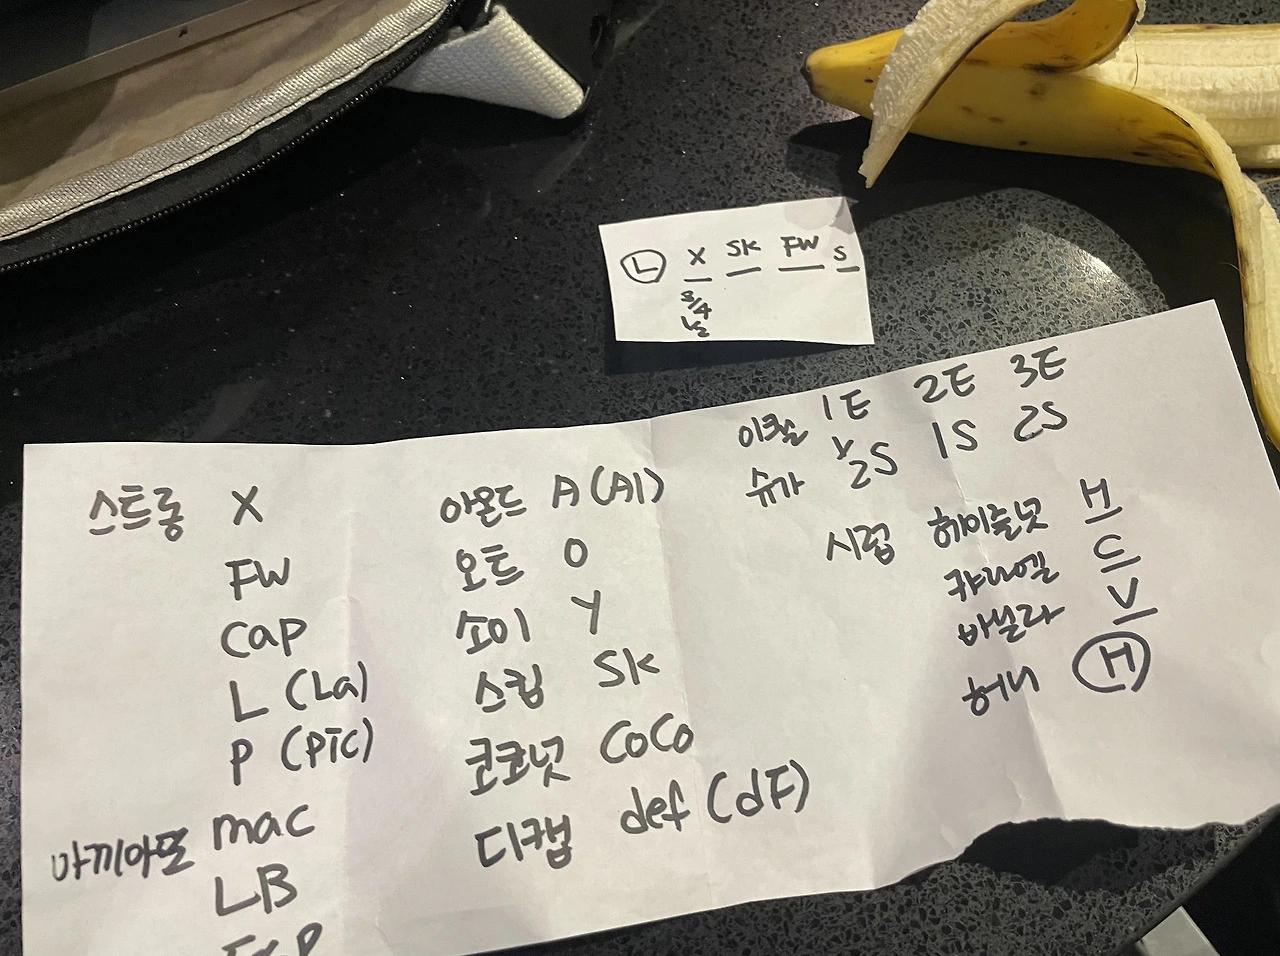 Ⓛ X SK FW S
3/4
1/2
이퀄 1E 2E 3E
슈가 1/2S 1S 2S
시럽 헤이즐넛 H
캬라멜 C
바닐라 V
허니 Ⓗ
스트롱 X
FW
cap
L (La)
P (Pic)
마끼아또 mac
LB
아몬드 A (Al)
오트 O
소이 Y
스킴 SK
코코넛 CoCo
디캡 def (dF)